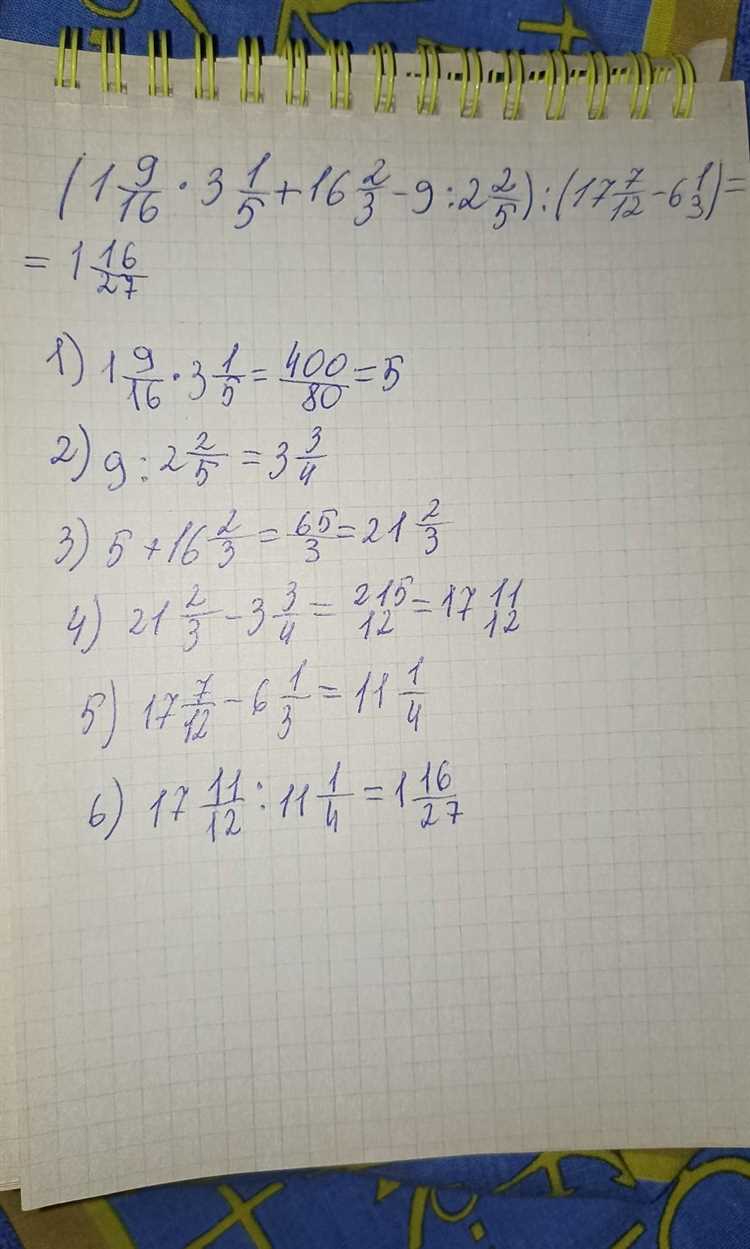 (1 9/16 · 3 1/5 + 16 2/3 - 9 : 2 2/5) : (17 7/12 - 6 1/3) =
= 1 16/27
1) 1 9/16 · 3 1/5 = 400/80 = 5
2) 9 : 2 2/5 = 3 3/4
3) 5 + 16 2/3 = 65/3 = 21 2/3
4) 21 2/3 - 3 3/4 = 215/12 = 17 11/12
5) 17 7/12 - 6 1/3 = 11 1/4
6) 17 11/12 : 11 1/4 = 1 16/27